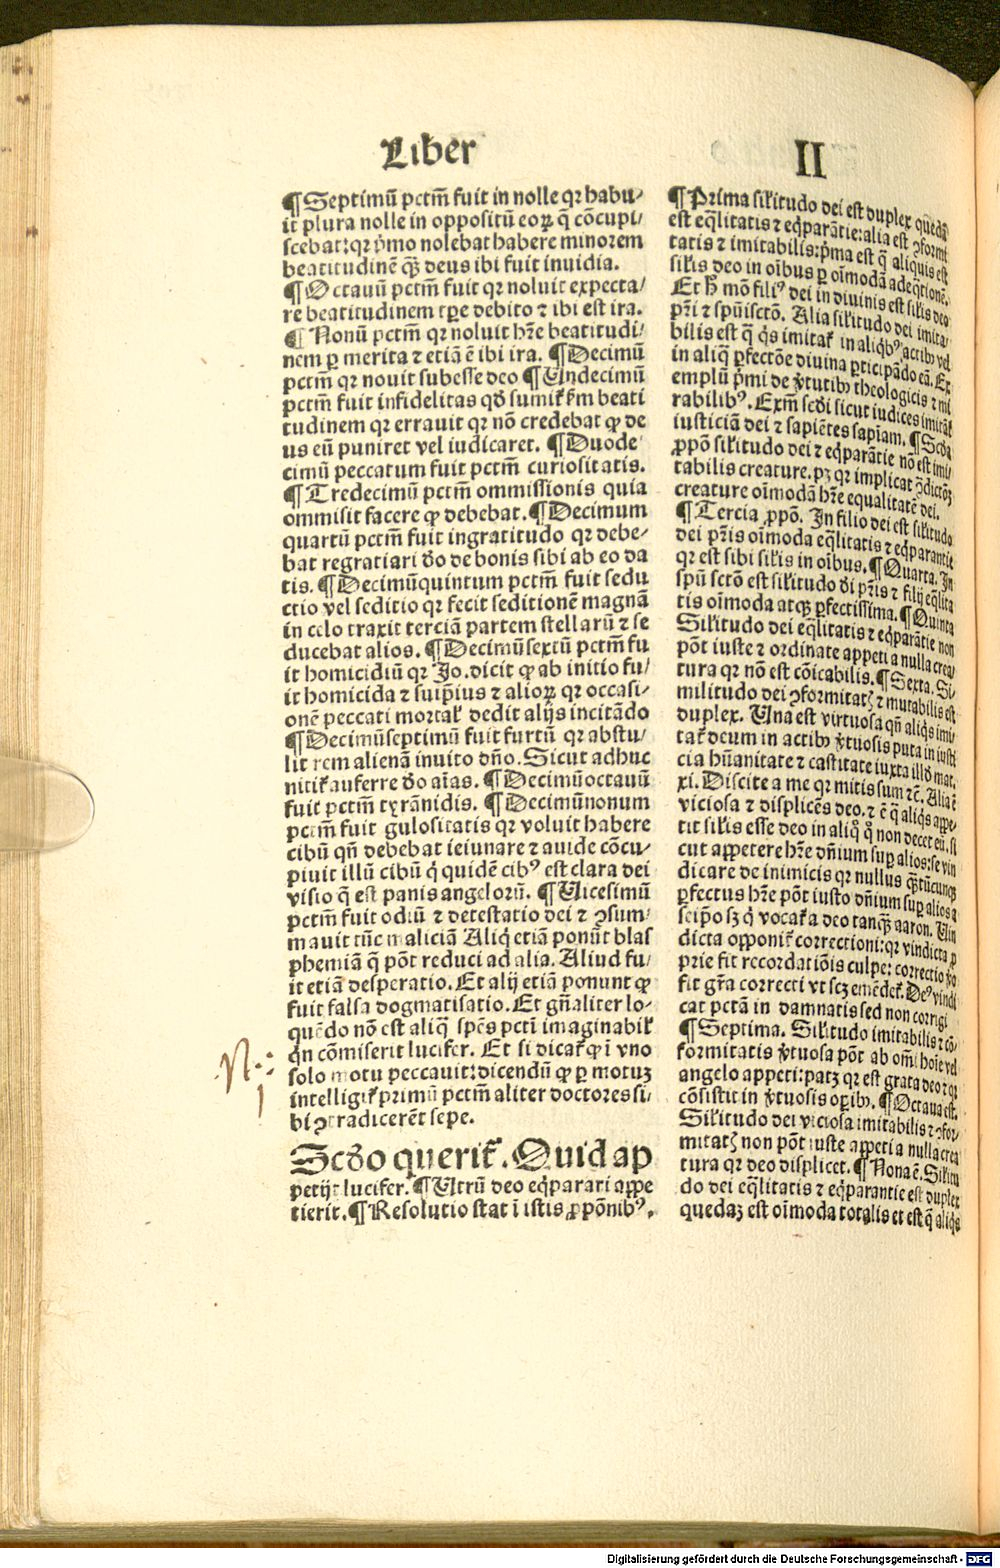 Liber II
¶Septimū pctm̄ fuit in nolle qꝛ habu-
it plura nolle in oppositū eoꝝ q̄ cōcupi-
scebat: qꝛ p̄mo nolebat habere minorem
beatitudinē qꝫ deus ibi fuit inuidia.
¶Octauū pctm̄ fuit qꝛ noluit expecta-
re beatitudinem tꝑe debito ⁊ ibi est ira.
¶Nonū pctm̄ qꝛ noluit hr̄e beatitudi-
nem ꝑ merita ⁊ etiā ē ibi ira. ¶Decimū
pctm̄ qꝛ nouit subesse deo ¶Undecimū
pctm̄ fuit infidelitas qð sumiť ẜm beati
tudinem qꝛ errauit qꝛ nō credebat ꝙ de
us eū puniret vel iudicaret. ¶Duode
cimū peccatum fuit pctm̄ curiositatis.
¶Tredecimū pctm̄ ommissionis quia
ommisit facere ꝙ debebat. ¶Decimum
quartū pctm̄ fuit ingratitudo qꝛ debe-
bat regratiari ðo de bonis sibi ab eo da
tis. ¶Decimūquintum pctm̄ fuit sedu
ctio vel seditio qꝛ fecit seditionē magnā
in celo traxit terciā partem stellarū ⁊ se
ducebat alios. ¶Decimūsextū pctm̄ fu
it homicidiū qꝛ Jo. dicit ꝙ ab initio fu-
it homicida ⁊ suip̄ius ⁊ alioꝝ qꝛ occasi-
onē peccati mortaľ dedit alijs incitādo
¶Decimūseptimū fuit furtū qꝛ abstu-
lit rem alienā inuito dn̄o. Sicut adhuc
nitiť auferre ðo aīas. ¶Decimūoctauū
fuit pctm̄ tyrānidis. ¶Decimūnonum
pctm̄ fuit gulositatis qꝛ voluit habere
cibū qn̄ debebat ieiunare ⁊ auide cōcu-
piuit illū cibū q̇ quidē cibꝰ est clara dei
visio q̄ est panis angelorū. ¶Uicesimū
pctm̄ fuit odiū ⁊ detestatio dei ⁊ ꝯsum-
mauit tūc maliciā Aliq̇ etiā ponūt blas
phemiā q̄ pōt reduci ad alia. Aliud fu-
it etiā desperatio. Et alij etiā ponunt ꝙ
fuit falsa dogmatisatio. Et gn̄aliter lo-
quēdo nō est aliq̄ spēs pcti imaginabiľ
q̄n cōmiserit lucifer. Et si dicať ꝙ ī vno
solo motu peccauit: dicendū ꝙ ꝑ motuꝫ
intelligiť primū pctm̄ aliter doctores si-
bi ꝯtradicerēt sepe.
Scðo queriť. Quid ap
petijt lucifer. ¶Utrū deo eq̄parari appe
tierit. ¶Resolutio stat ī istis ꝓpōnibꝰ.
¶Prima siľitudo dei est duplex quedā
est eq̄litatis ⁊ eq̄parātie: alia est ꝯformi
tatis ⁊ imitabilis: p̄ma est q̄ aliquis est
siľis deo in oībus ꝑ oīmodā adeq̄tionē.
Et h̄ mō filiꝰ dei in diuinis est siľis deo
pr̄i ⁊ spūisctō. Alia siľitudo dei imita-
bilis est q̄ q̇s imitať in aliq̇bꝰ actibꝫ vel
in aliq̄ ꝑfectōe diuina ꝑticipādo eā. Ex
emplū p̄mi de v̓tutibꝫ theologicis ⁊ mi
rabilibꝰ. Exm̄ scði sicut iudices imitāť
iusticiā dei ⁊ sapiētes sapīam. ¶Scða
ꝓpō siľitudo dei ⁊ eq̄parātie nō est imi-
tabilis creature. pꝫ qꝛ implicat ꝯ̄dictōꝫ
creature oīmodā hr̄e equalitatē dei.
¶Tercia ꝓpō. In filio dei est siľitudo
dei pr̄is oīmoda eq̄litatis ⁊ eq̄parantie
qꝛ est sibi siľis in oībus. ¶Quarta. In
spū sctō est siľitudo ði pr̄is ⁊ filij eq̄lita
tis oīmoda atqꝫ ꝑfectissima. ¶Quinta
Siľitudo dei eq̄litatis ⁊ eq̄parātie non
pōt iuste ⁊ ordinate appeti a nulla crea-
tura qꝛ nō est cōicabilis. ¶Sexta. Si-
militudo dei ꝯformitatꝭ ⁊ mutabilis est
duplex. Una est virtuosa qn̄ aliq̇s imi
tať deum in actibꝫ v̓tuosis puta in iusti
cia hūanitate ⁊ castitate iuxta illð mat.
xi. Discite a me qꝛ mitis sum ⁊c̄. Alia ē
viciosa ⁊ displicēs deo. ⁊ ē q̄ aliq̇s appe-
tit siľis esse deo in aliq̊ q̊ non decet eū. si
cut appetere hr̄e dn̄ium suꝑ alios: se vin
dicare de inimicis qꝛ nullus q̄ꝫtūcunqꝫ
ꝑfectus hr̄e pōt iusto dn̄ium suꝑ alios a
seip̄o sꝫ q̇ vocať a deo tanqꝫ aaron. Uin
dicta opponiť correctioni: qꝛ vindicta ꝓ
prie fit recordatiōis culpe: correctio v̓o
fit gr̄a correcti vt scꝫ emēdeť. Deꝰ vindi
cat pctā in damnatis sed non corrigi
¶Septima. Siľitudo imitabilis ⁊ cō-
formitatis v̓tuosa pōt ab omī hoīe vel
angelo appeti: patꝫ qꝛ est grata deo ⁊ qꝛ
cōsistit in v̓tuosis oꝑibꝫ. ¶Octaua est.
Siľitudo dei viciosa imitabilis ⁊ ꝯfor-
mitatꝭ non pōt iuste appeti a nulla crea
tura qꝛ deo displicet. ¶Nona ē. Siľitu
do dei eq̄litatis ⁊ eq̄parantie est duplex
quedaꝫ est oīmoda totalis et est q̄ aliq̇s
Digitalisierung gefördert durch die Deutsche Forschungsgemeinschaft - DFG